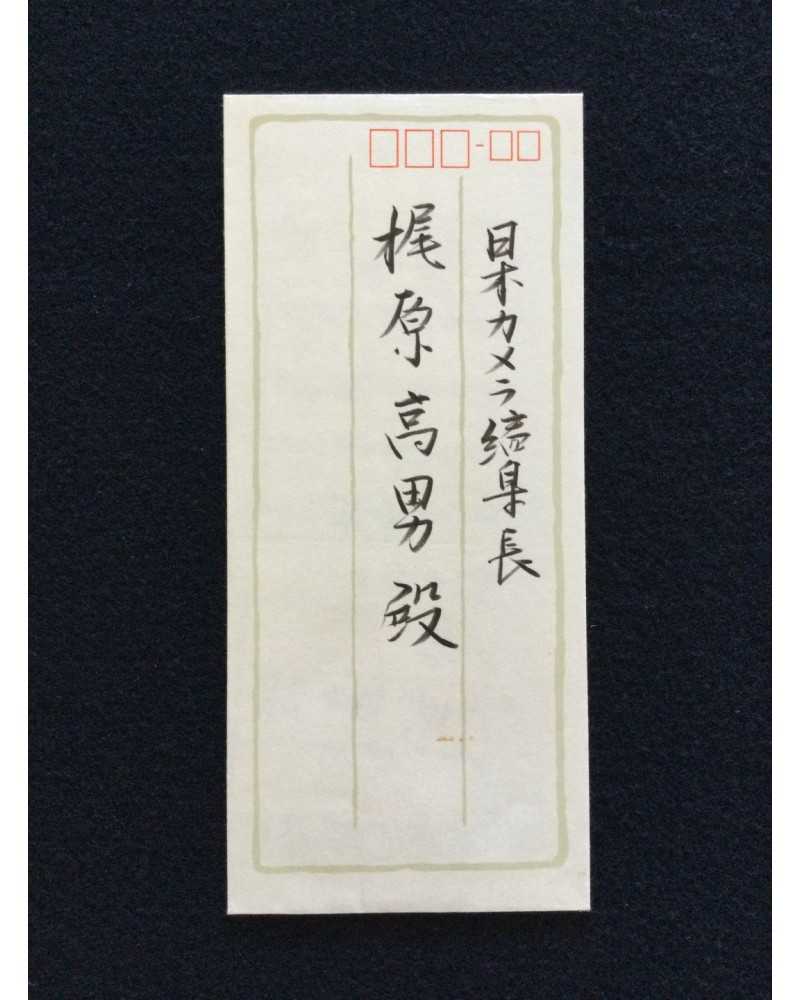 日本カメラ編集長
梶原高男殿